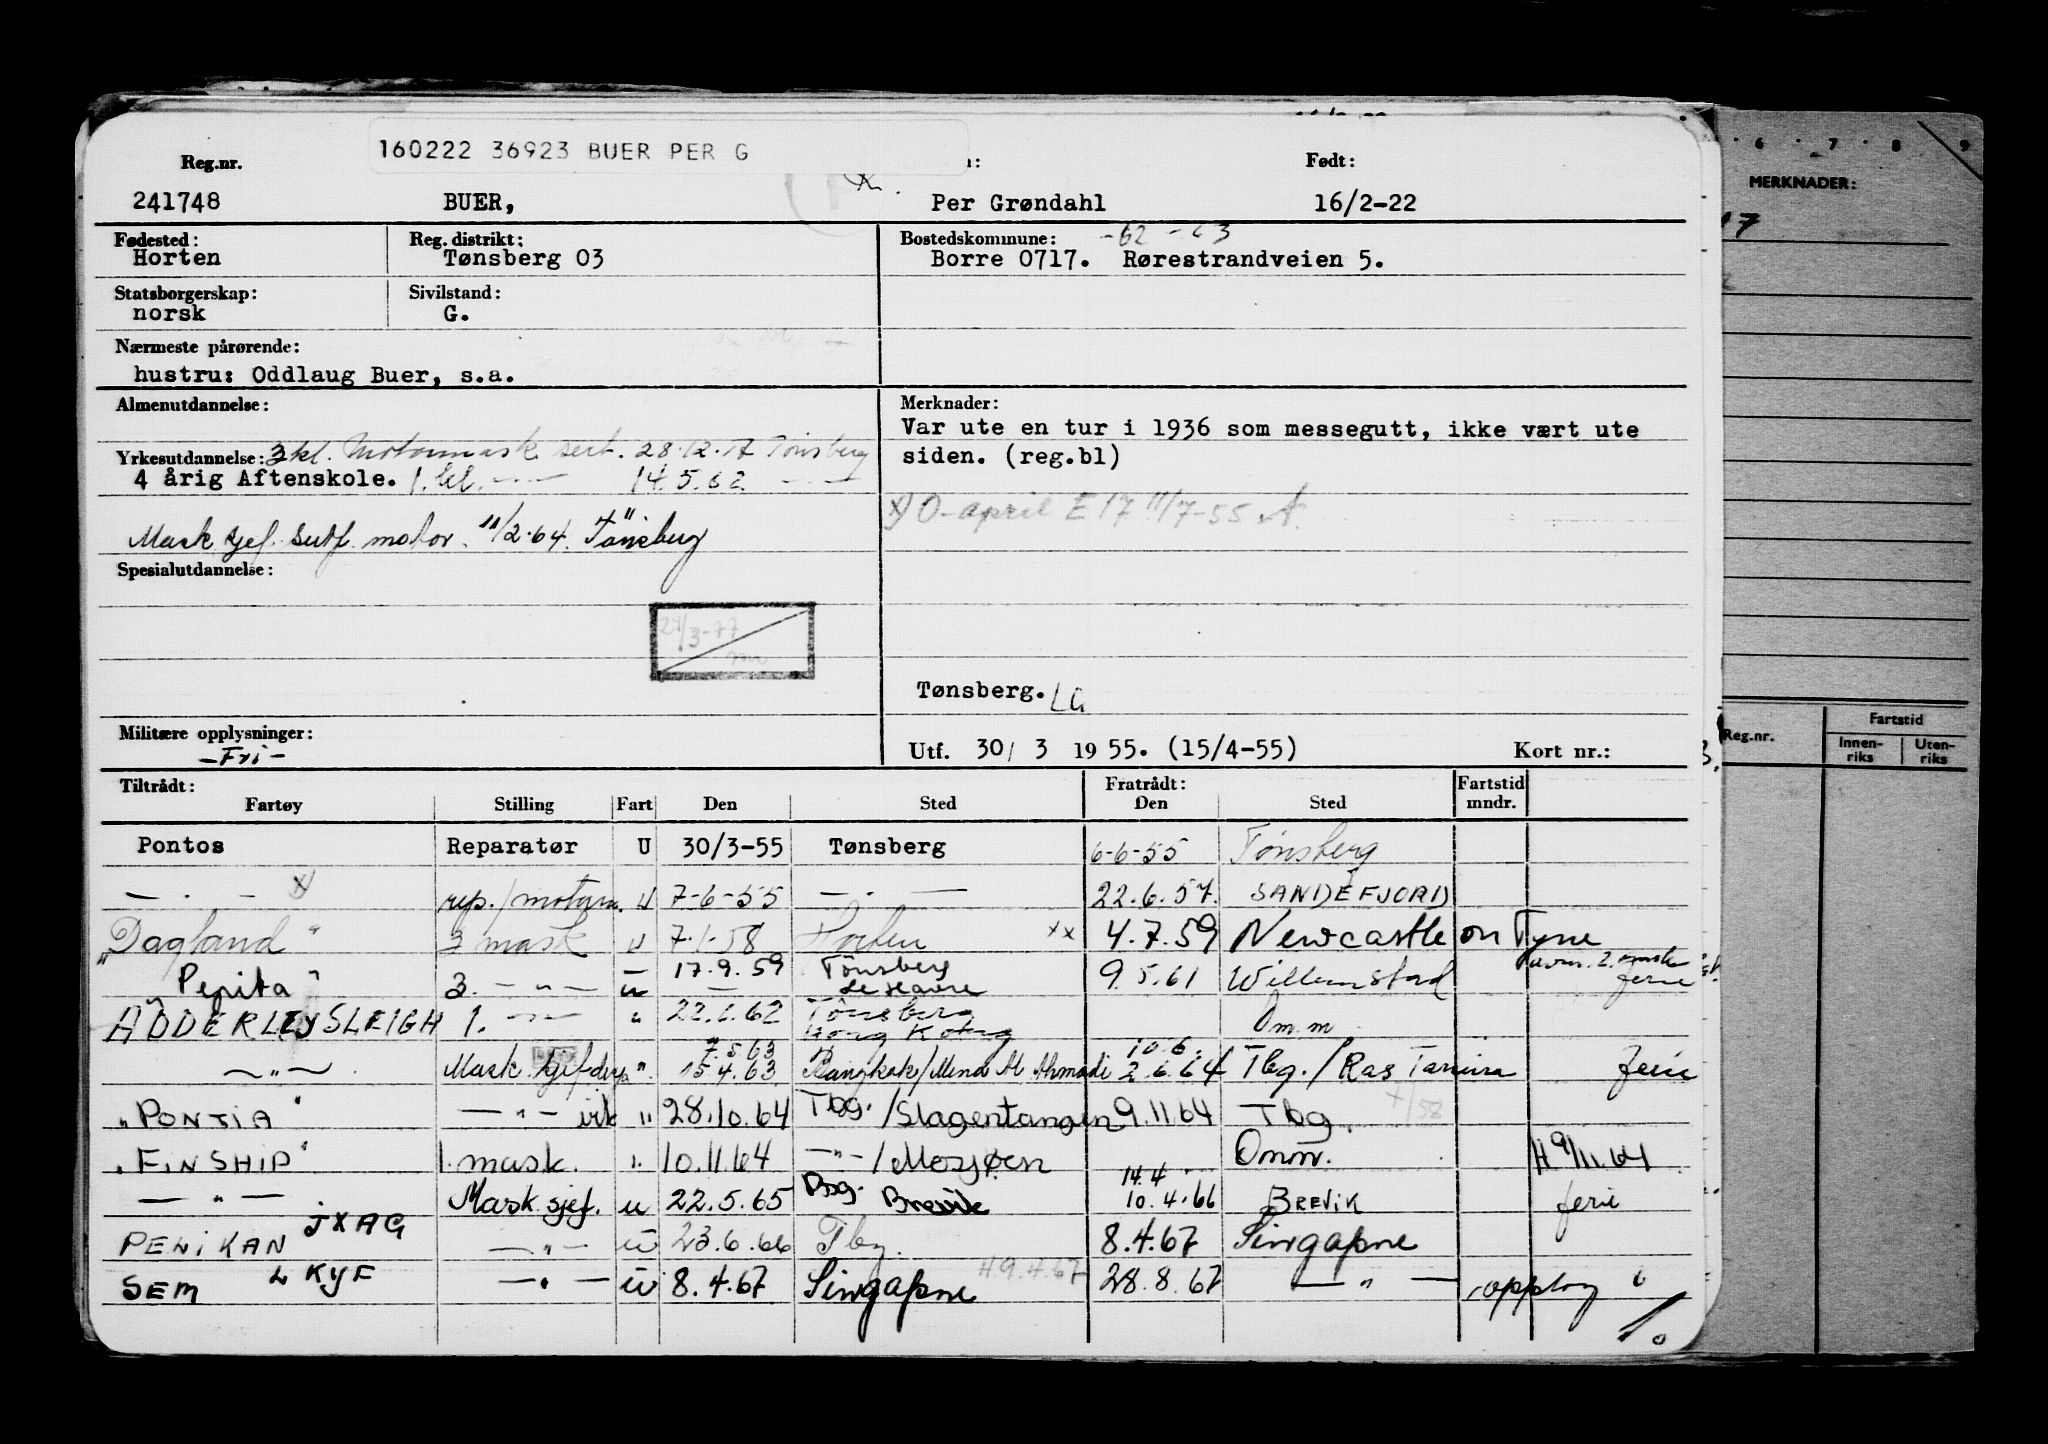 160222 36923 BUER PER G
Reg.nr. Født:
241748 BUER, Per Grøndahl 16/2-22
6 7 8 9
MERKNADER:
17
Fødested: Reg. distrikt: Bostedskommune: -62
Horten Tønsberg 03 Borre 0717. Rørestrandveien 5.
Statsborgerskap: Sivilstand:
norsk G.
Nærmeste pårørende:
hustru: Oddlaug Buer, s.a.
Almenutdannelse: Merknader:
Var ute en tur i 1936 som messegutt, ikke vært ute
siden. (reg.bl)
Yrkesutdannelse: 3 kl. Motormask sert. 28.12.57 Tønsberg
4 årig Aftenskole. 1. kl. -"- 14.5.62 -"-
x) O-april E 17 11/7-55
Mask sjef. sertf. motor. 11/2.64. Tønsberg
Spesialutdannelse:
/3-77
Tønsberg. LG
Militære opplysninger:
-Fri-
Utf. 30/ 3 1955. (15/4-55) Kort nr.:
Reg.nr. Fartstid
Innenriks Utenriks
Tiltrådt: Fratrådt: Fartstid
Fartøy Stilling Fart Den Sted Den Sted mndr.
Pontos Reparatør U 30/3-55 Tønsberg 6-6-55 Tønsberg
— . — x) rep./motorm. U 7-6-55 — . — 22.6.57. SANDEFJORD
"Dagland" 3 mask U 7.1.58 Horten xx 4.7.59 Newcastle on Tyne
"Pepita" 3. — " — u 17.9.59 Tønsberg Le Havre 9.5.61 Willemstad ferie
ADDERLEYSLEIGH 1. — " — " 22.2.62 Tønsberg Hong Kong Om.m
— " — Mask. sjef " 7.5.63 15.4.63 Bangkok/Mena Al Ahmadi 10.6. 2.6.64 Tbg./Ras Tanura ferie
"PONTIA" — " — vik " 28.10.64 Tbg./Slagentangen 9.11.64 Tbg.
"FINSHIP" 1. mask. ". 10.11.64 — " — /Mosjøen Omm. H 9/11.64
— " — Mask sjef. u 22.5.65 Brevik 14.4 10.4.66 BREVIK ferie
PELIKAN JXAG — " — u 23.6.66 Tbg. 8.4.67 Singapore
SEM LKYF — " — u 8.4.67 Singapore H9.4.67 28.8.67 — " — opplag